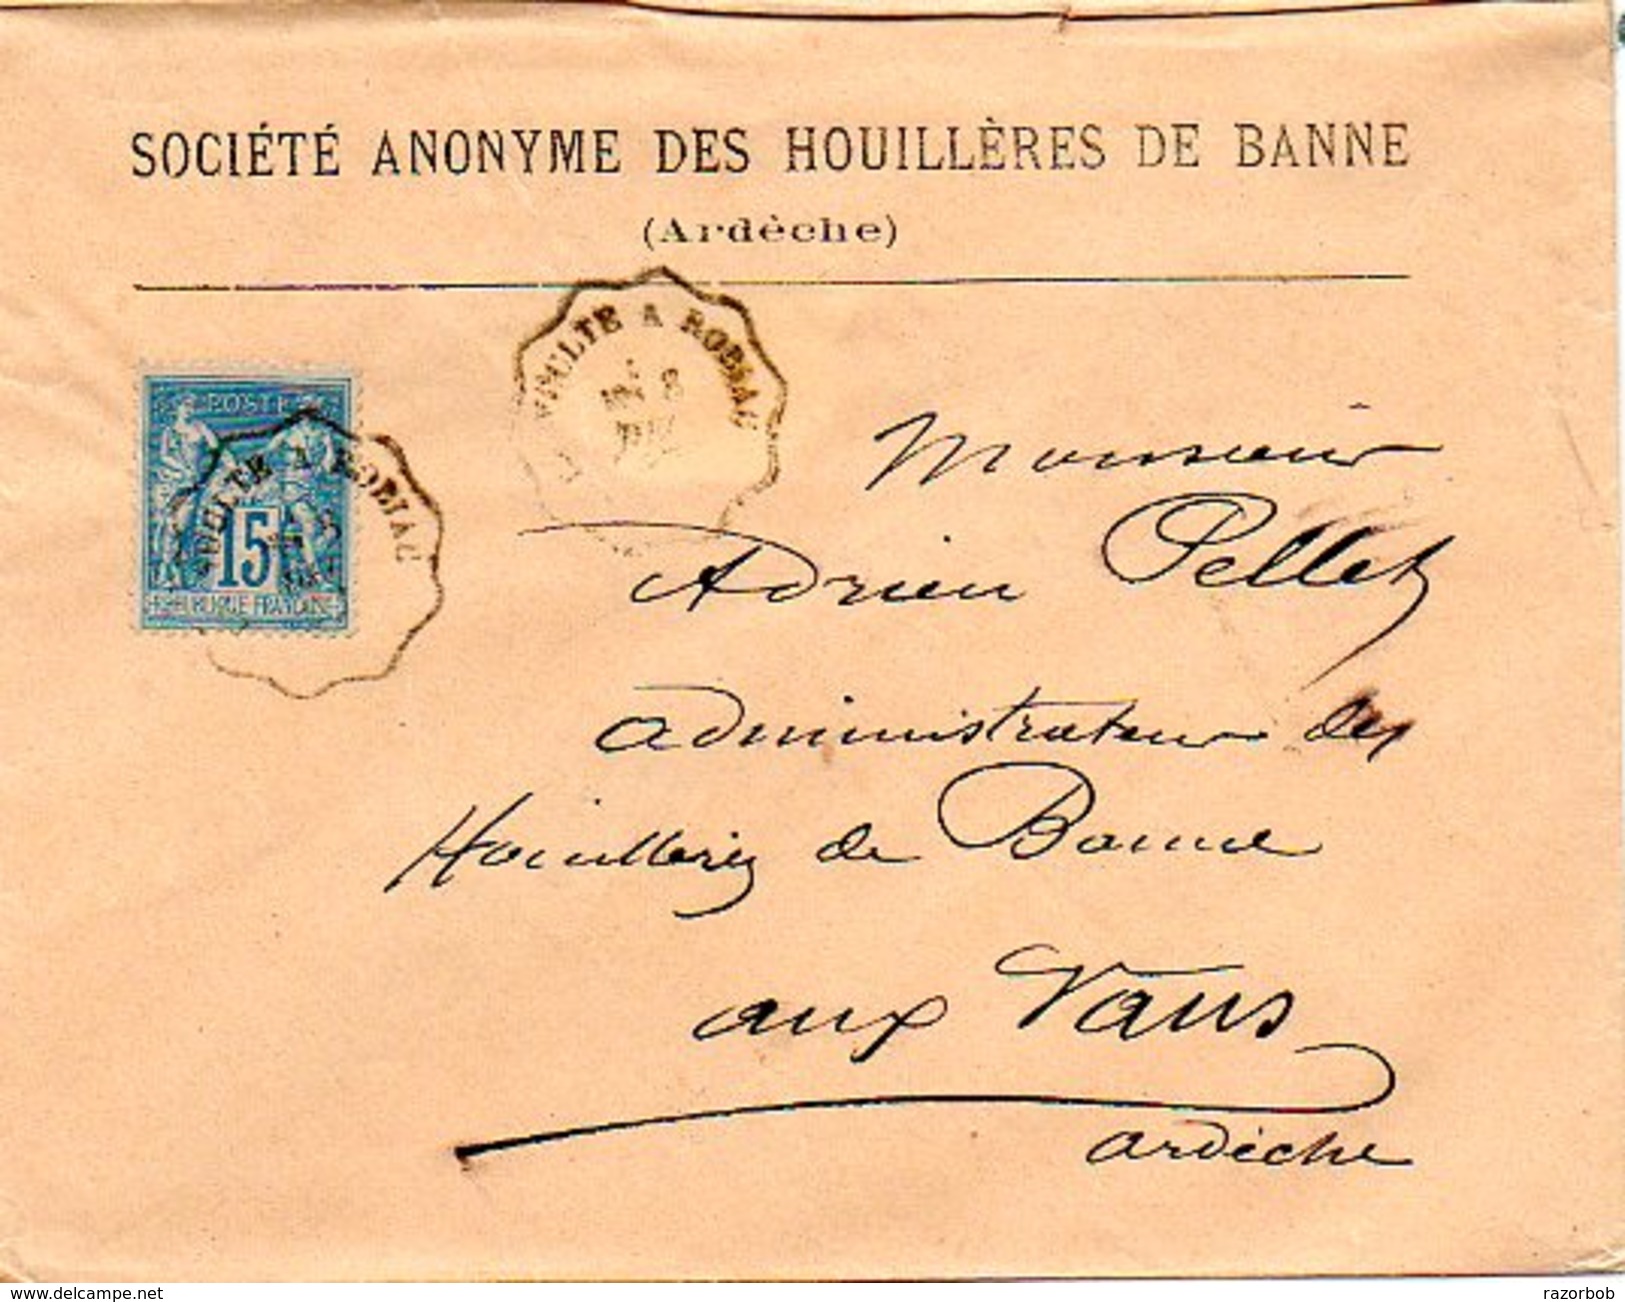 SOCIÉTÉ ANONYME DES HOUILLÈRES DE BANNE
(Ardèche)
VOULTE A ROBIAC
8
POSTE
VOULTE A ROBIAC
15
REPUBLIQUE FRANÇAISE
Monsieur
Adrien Pellet
administrateur des
Houillères de Banne
aux Vans
ardèche
delcampe.net
razorbob